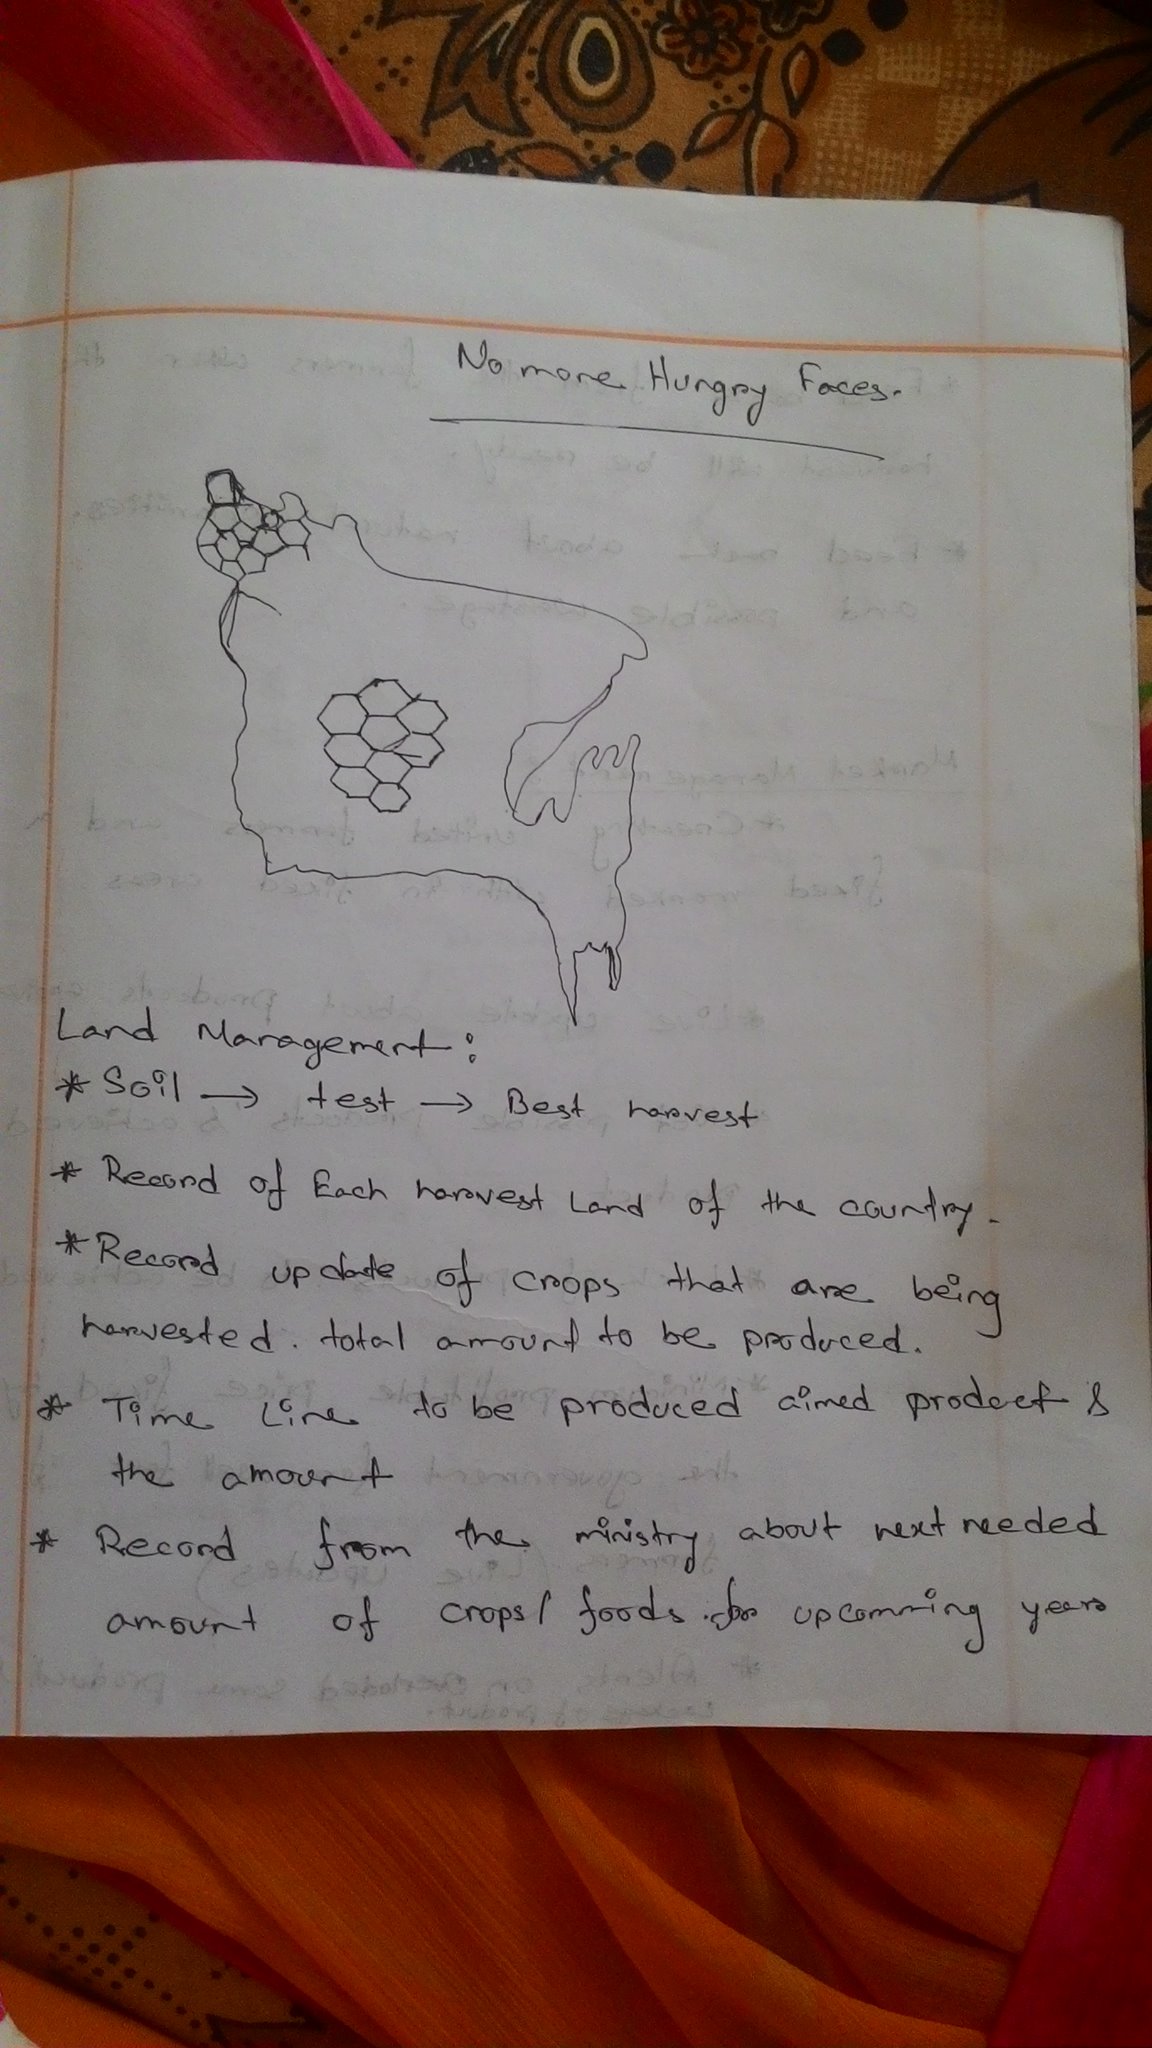 No more Hungry Faces.
Land Management:
* Soil → test → Best harvest
* Record of Each harvest Land of the country.
* Record update of crops that are being
harvested. total amount to be produced.
* Time Line to be produced aimed product &
the amount
* Record from the ministry about next needed
amount of crops/foods for upcomming years